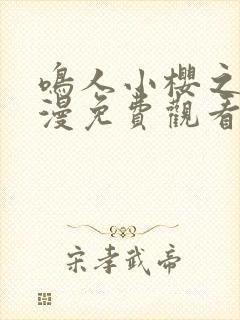 鳴人小櫻之
漫免費觀看
宋孝武帝